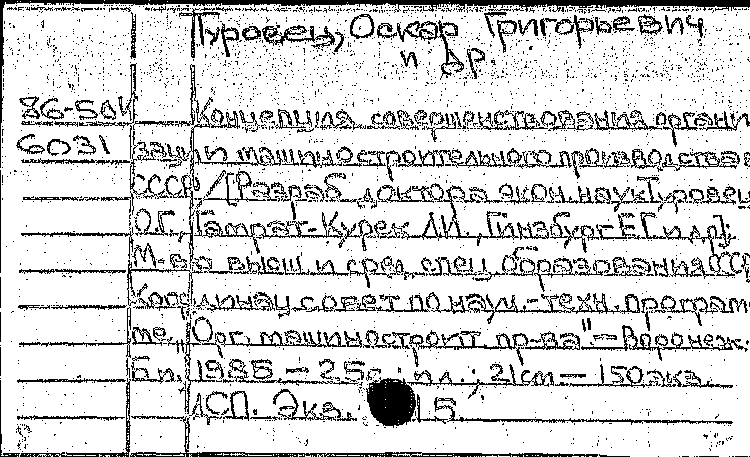 Туровец, Оскар Григорьевич
и др.
86-50К Концепция совершенствования органи
6031 зации машиностроительного производства в
СССР / [Разраб доктора экон. наук Туровец
О.Г., Гамрат-Курек Л.И., Гинзбург Е.Г. и др];
М-во высш и сред. спец образования СССР
Координац совет по науч.-техн. програм
ме, "Орг. машиностроит пр-ва" — Воронеж:
Б.и. 1985. — 25с.: ил.; 21см — 150экз.
ДСП. Экз. 15.